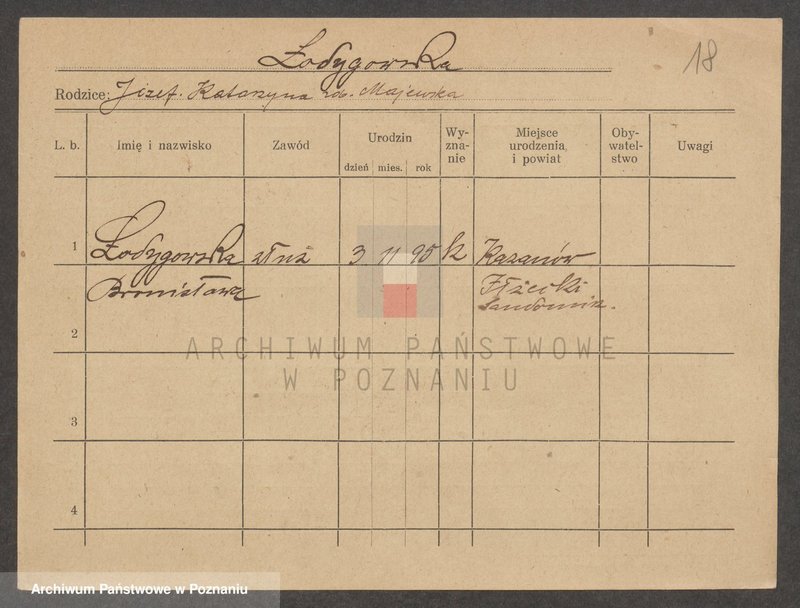 Łodygowska
18
Rodzice: Józef. Katarzyna rdv. Majewska
L. b. Imię i nazwisko Zawód Urodzin dzień mies. rok Wy-zna-nie Miejsce urodzenia i powiat Oby-watel-stwo Uwagi
1 Łodygowska służ 3 11 95 k Kazanów
Bronisława Iłżecki
Sandomir.
2
ARCHIWUM PAŃSTWOWE
W POZNANIU
3
4
Archiwum Państwowe w Poznaniu